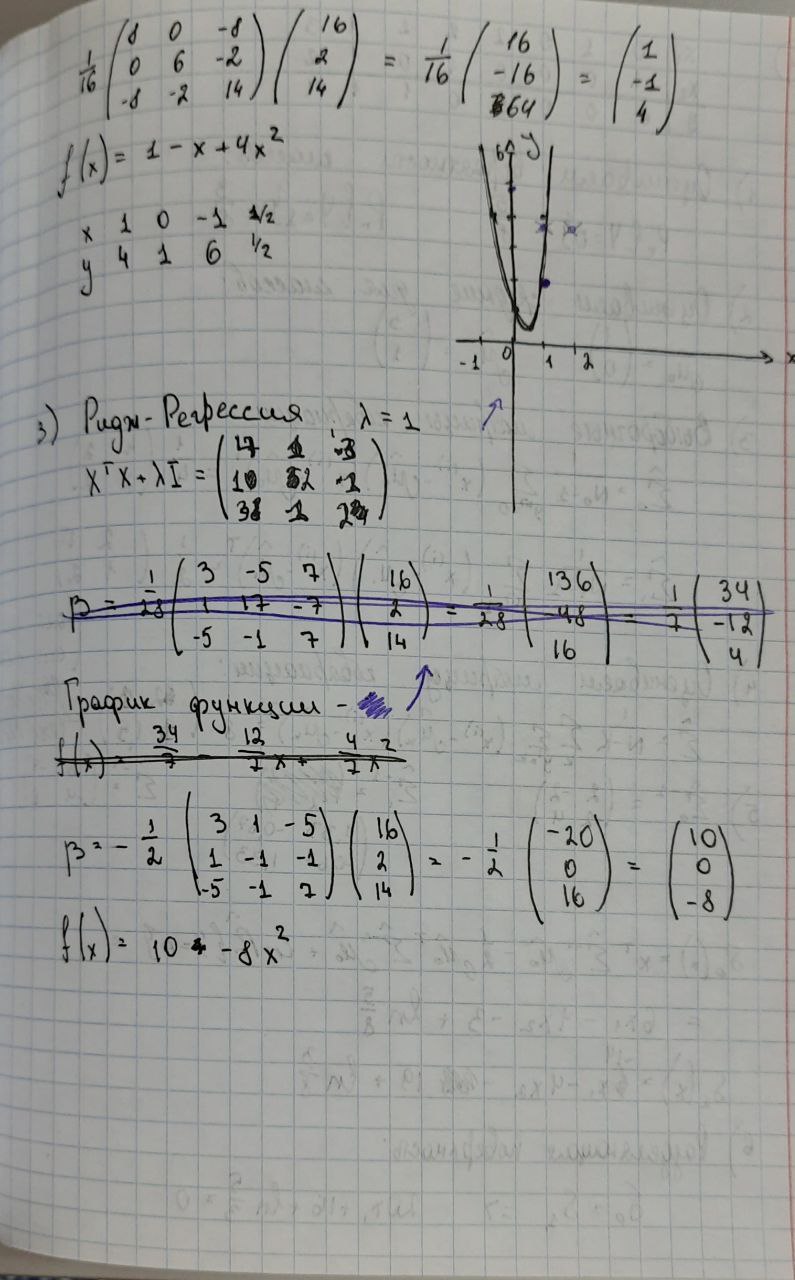 1/16 (8 0 -8; 0 6 -2; -8 -2 14) (16; 2; 14) = 1/16 (16; -16; 64) = (1; -1; 4)
f(x) = 1 - x + 4x²
x 1 0 -1 1/2
y 4 1 6 1/2
6 y
-1 0 1 2 x
3) Ридж-Регрессия λ = 1
XᵀX + λI =
β = 1/28 (3 -5 7; 1 17 -7; -5 -1 7) (16; 2; 14) = 1/28 (136; -48; 16) = 1/7 (34; -12; 4)
График функции -
f(x) = 34/7 - 12/7 x + 4/7 x²
β = - 1/2 (3 1 -5; 1 -1 -1; -5 -1 7) (16; 2; 14) = - 1/2 (-20; 0; 16) = (10; 0; -8)
f(x) = 10 - 8x²